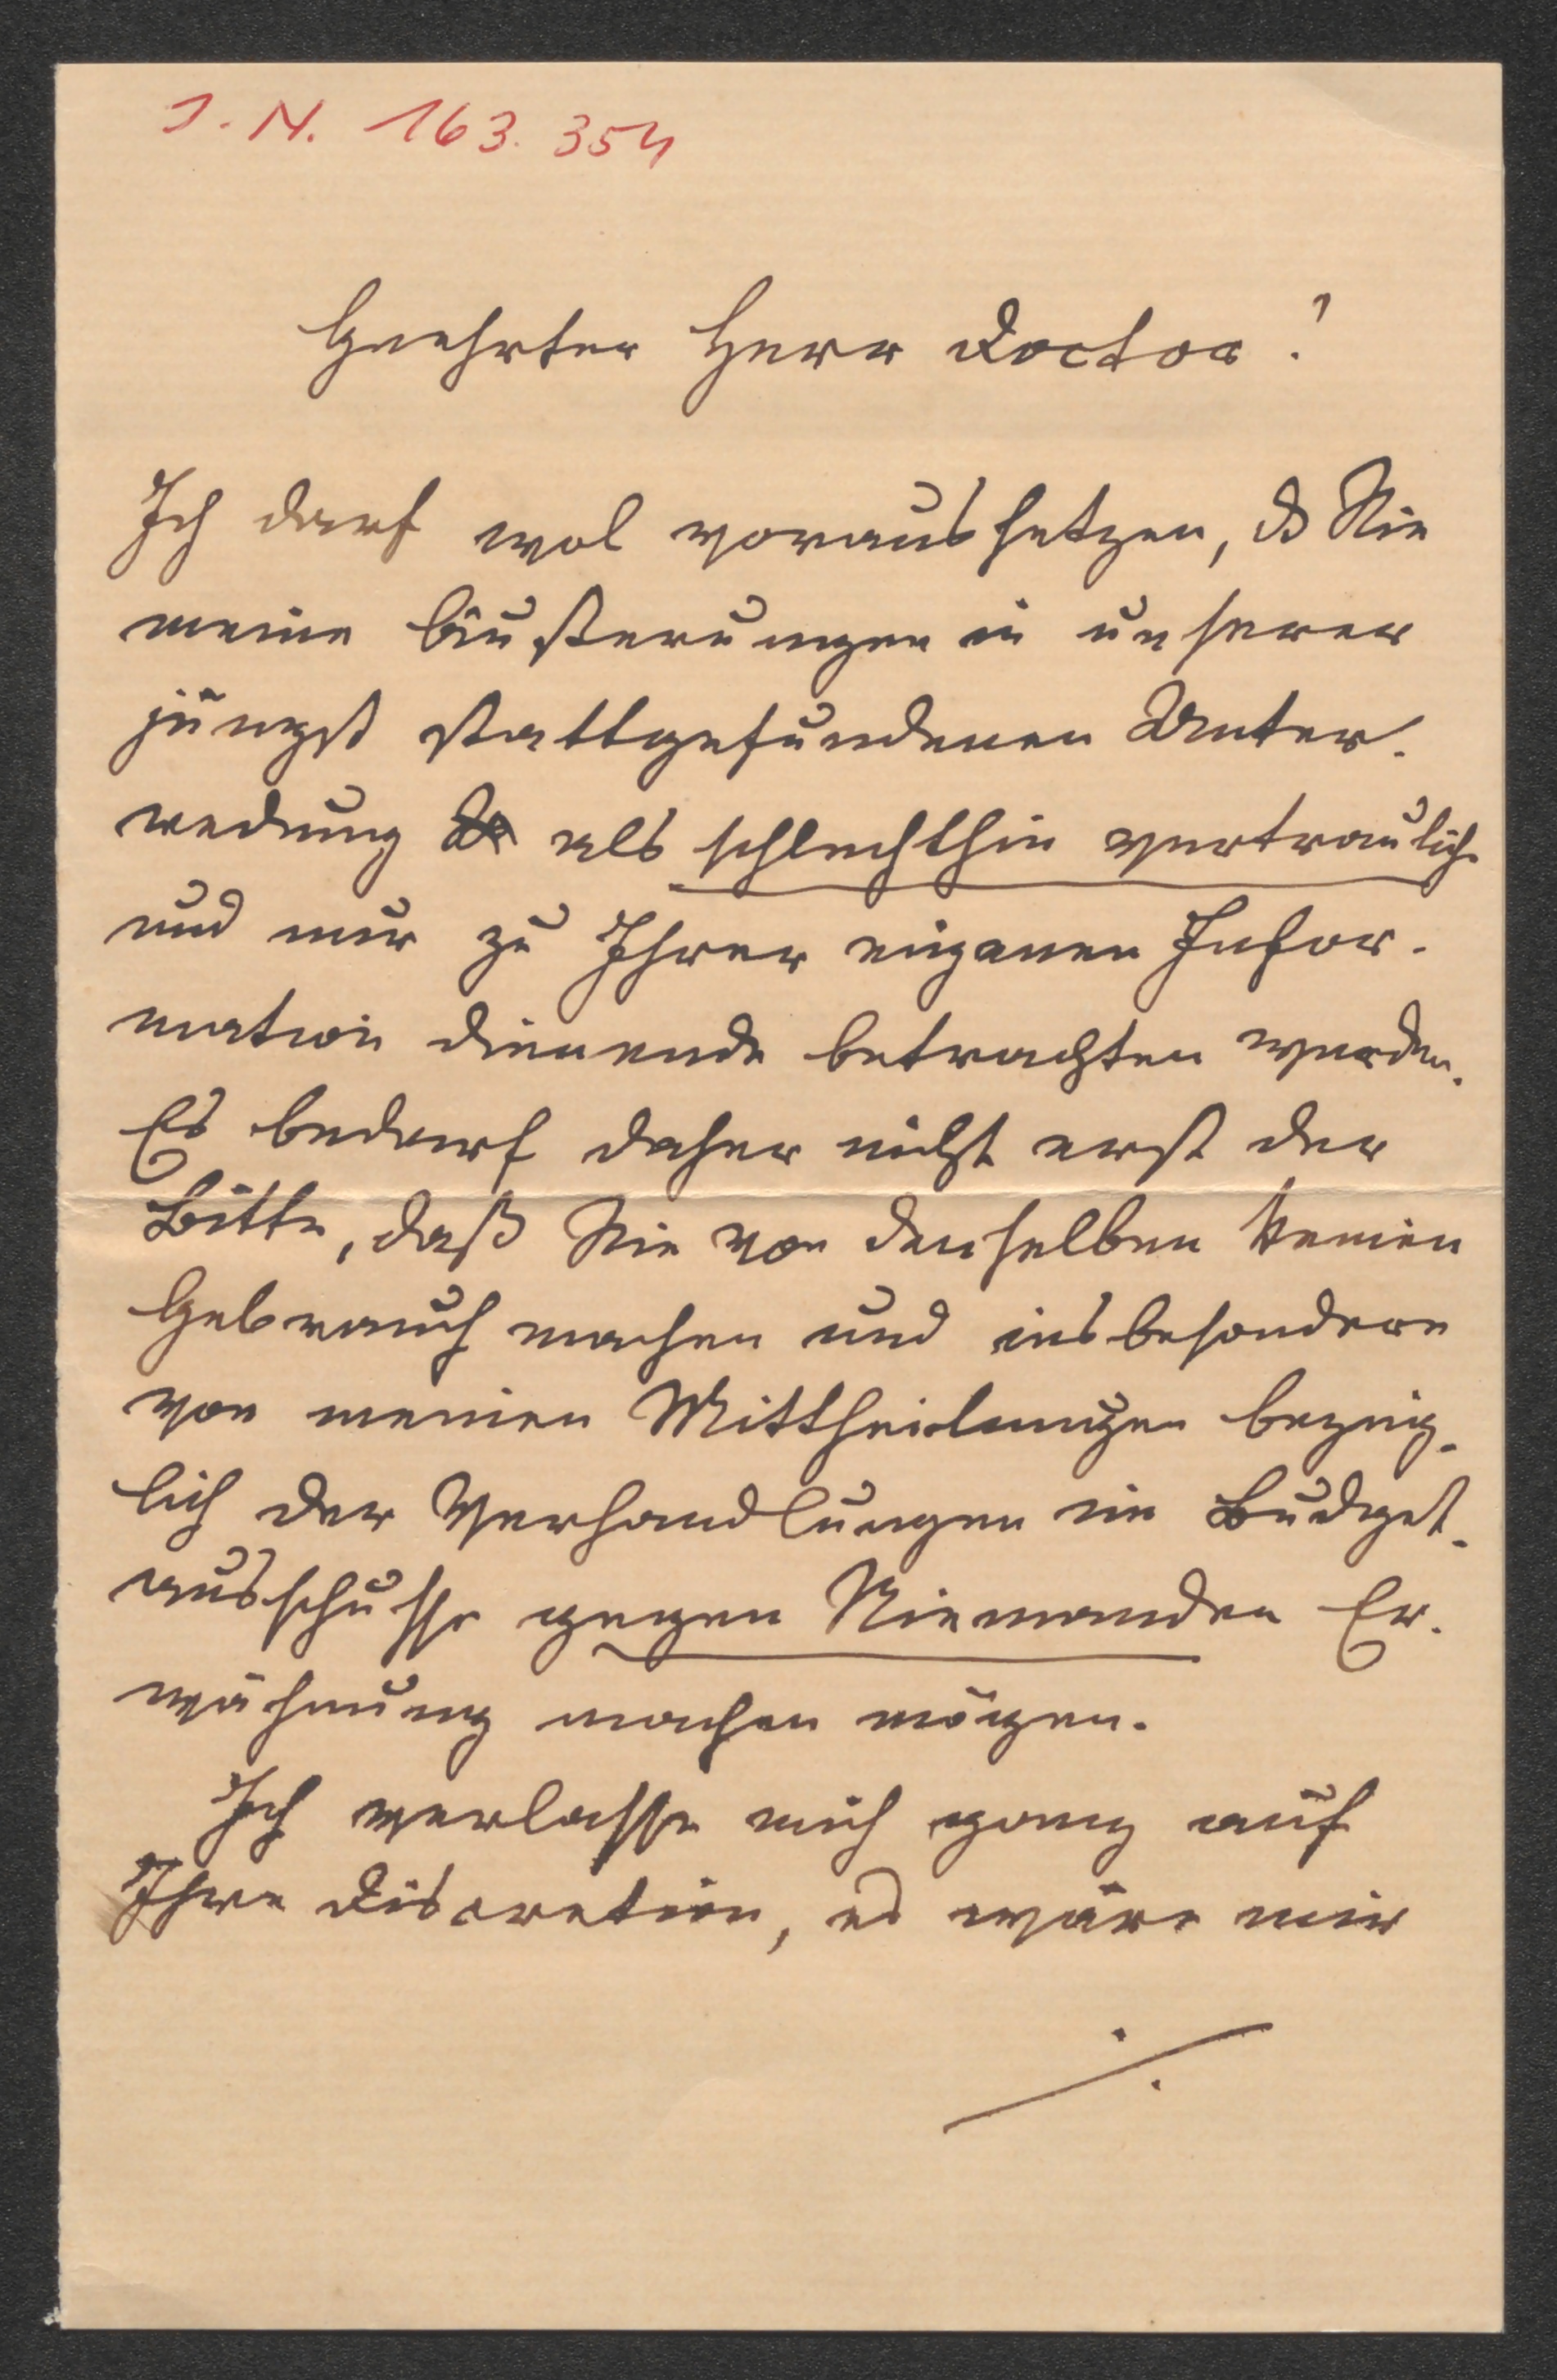 I. N. 163.354
Geehrter Herr Doctor!
Ich darf wol voraussetzen, dß Sie
meine Äußerungen in unserer
jüngst stattgefundenen Unter-
redung als schlechthin vertraulich
und nur zu Ihrer eigenen Infor-
mation dienende betrachten werden.
Es bedarf daher nicht erst der
Bitte, daß Sie von denselben keinen
Gebrauch machen und insbesondere
von meinen Mittheilungen bezüg-
lich der Verhandlungen im Budget-
ausschusse gegen Niemanden Er-
wähnung machen mögen.
Ich verlasse mich ganz auf
Ihre Discretion, es wäre mir
./.